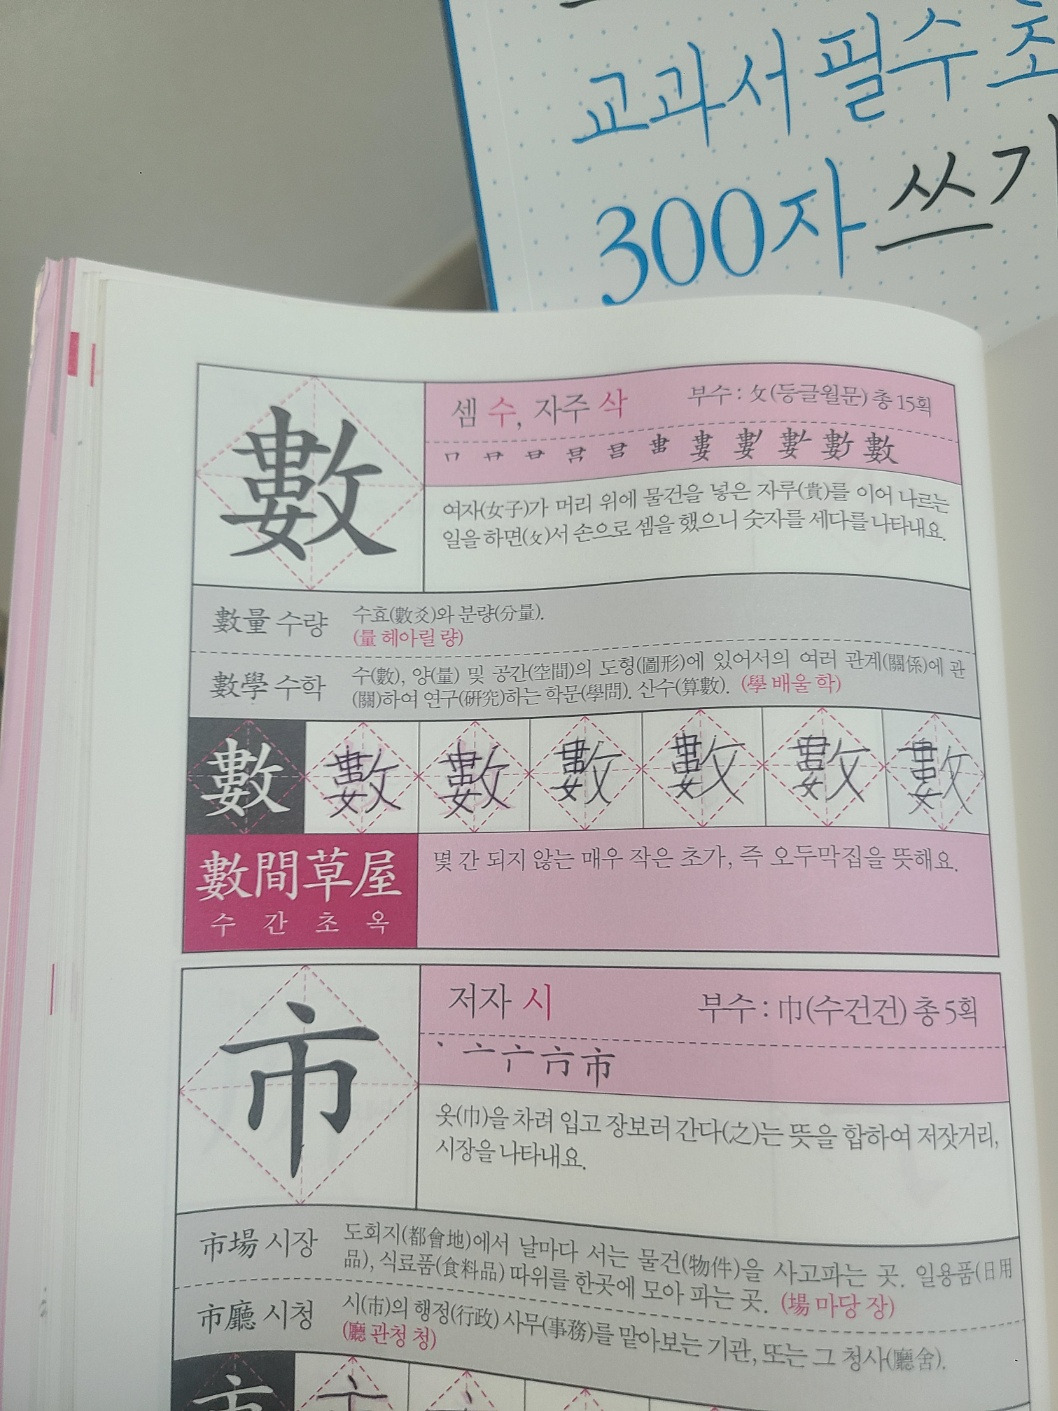 교과서 필수 초
300자 쓰기
數
셈 수, 자주 삭 부수 : 攵(둥글월문) 총 15획
婁 數 數
여자(女子)가 머리 위에 물건을 넣은 자루(貴)를 이어 나르는
일을 하면(攵)서 손으로 셈을 했으니 숫자를 세다를 나타내요.
數量 수량 수효(數爻)와 분량(分量).
(量 헤아릴 량)
數學 수학 수(數), 양(量) 및 공간(空間)의 도형(圖形)에 있어서의 여러 관계(關係)에 관
(關)하여 연구(硏究)하는 학문(學問). 산수(算數). (學 배울 학)
數 數 數 數 數 數 數
數間草屋 몇 간 되지 않는 매우 작은 초가, 즉 오두막집을 뜻해요.
수 간 초 옥
市
저자 시 부수 : 巾(수건건) 총 5획
丶 亠 市
옷(巾)을 차려 입고 장보러 간다(之)는 뜻을 합하여 저잣거리,
시장을 나타내요.
市場 시장 도회지(都會地)에서 날마다 서는 물건(物件)을 사고파는 곳. 일용품(日用
品), 식료품(食料品) 따위를 한곳에 모아 파는 곳. (場 마당 장)
市廳 시청 시(市)의 행정(行政) 사무(事務)를 맡아보는 기관, 또는 그 청사(廳舍).
(廳 관청 청)
市